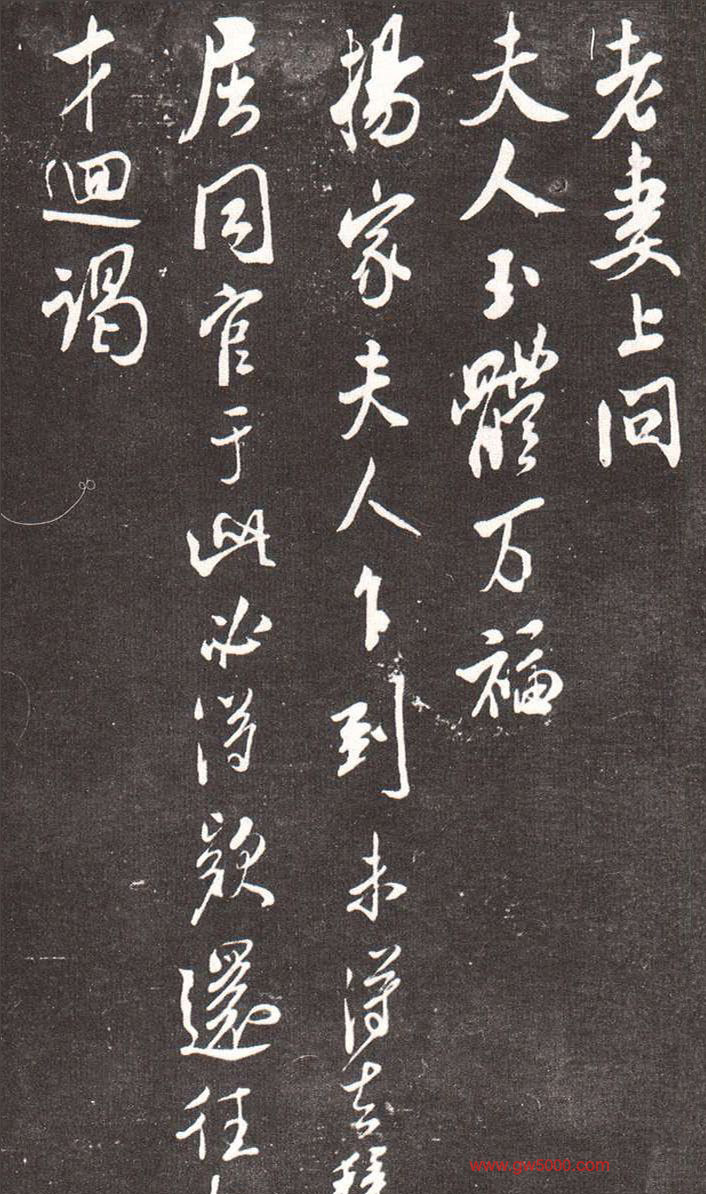 老妻上问
夫人玉體万福
揚家夫人乍到未得去
居同官于此必得欵還往
才迴谒
www.gw5000.com